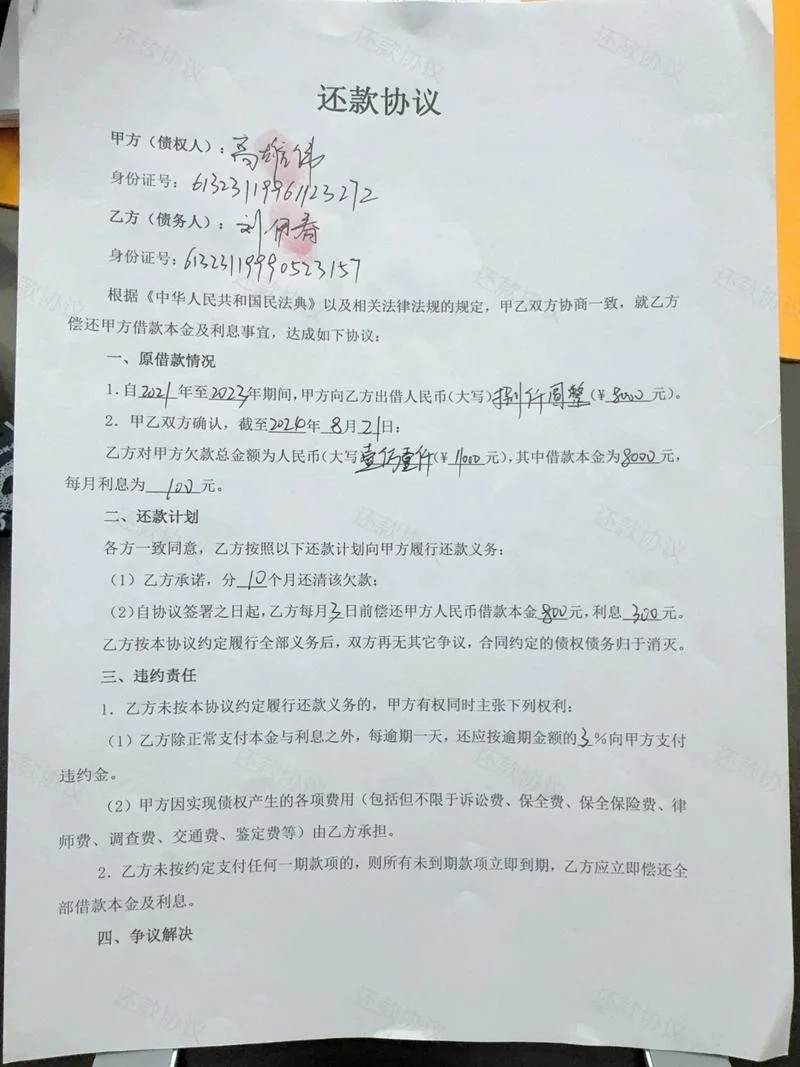 还款协议
甲方（债权人）：高雄伟
身份证号：612311199611123272
乙方（债务人）：刘春
身份证号：61231119990523157
根据《中华人民共和国民法典》以及相关法律法规的规定，甲乙双方协商一致，就乙方
偿还甲方借款本金及利息事宜，达成如下协议：
一、原借款情况
1.自2021年至2023年期间，甲方向乙方出借人民币（大写）捌仟圆整（¥8000元）。
2．甲乙双方确认，截至2024年8月21日：
乙方对甲方欠款总金额为人民币（大写壹佰壹仟（¥11000元），其中借款本金为8000元，
每月利息为100元。
二、还款计划
各方一致同意，乙方按照以下还款计划向甲方履行还款义务：
（1）乙方承诺，分10个月还清该欠款；
（2）自协议签署之日起，乙方每月3日前偿还甲方人民币借款本金800元，利息300元。
乙方按本协议约定履行全部义务后，双方再无其它争议，合同约定的债权债务归于消灭。
三、违约责任
1．乙方未按本协议约定履行还款义务的，甲方有权同时主张下列权利：
（1）乙方除正常支付本金与利息之外，每逾期一天，还应按逾期金额的3%向甲方支付
违约金。
（2）甲方因实现债权产生的各项费用（包括但不限于诉讼费、保全费、保全保险费、律
师费、调查费、交通费、鉴定费等）由乙方承担。
2．乙方未按约定支付任何一期款项的，则所有未到期款项立即到期，乙方应立即偿还全
部借款本金及利息。
四、争议解决